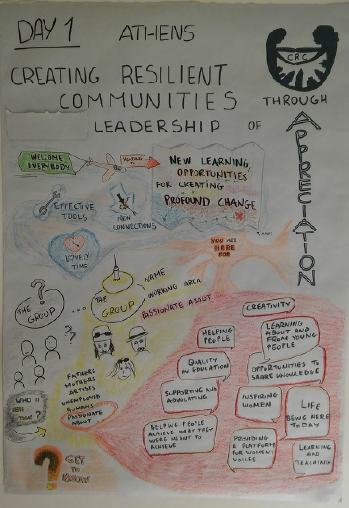 DAY 1 ATHENS
CRC
CREATING RESILIENT
COMMUNITIES
THROUGH
LEADERSHIP OF
APPRECIATION
WELCOME
EVERYBODY
NEW LEARNING,
OPPORTUNITIES
FOR CREATING
PROFOUND CHANGE
EFFECTIVE
TOOLS
NEW
CONNECTIONS
LOVELY
TIME
YOU ARE
HERE
FOR
?
THE
GROUP
...
THE
GROUP
NAME
WORKING AREA
PASSIONATE ABOUT
?
FATHERS
MOTHERS
ARTISTS
UNEMPLOYED
HUMANS
PASSIONATE
ABOUT
WHO IS
HERE
TODAY?
? GET
TO
KNOW
CREATIVITY
HELPING
PEOPLE
LEARNING
ABOUT AND
FROM YOUNG
PEOPLE
QUALITY
IN EDUCATION
OPPORTUNITIES TO
SHARE KNOWLEDGE
SUPPORTING AND
INSPIRING
WOMEN
LIFE
BEING HERE
TODAY
HELPING PEOPLE
ACHIEVE WHAT THEY
WERE MEANT TO
ACHIEVE
PROVIDING
A PLATFORM
FOR WOMENS
VOICES
LEARNING
AND
TEACHING